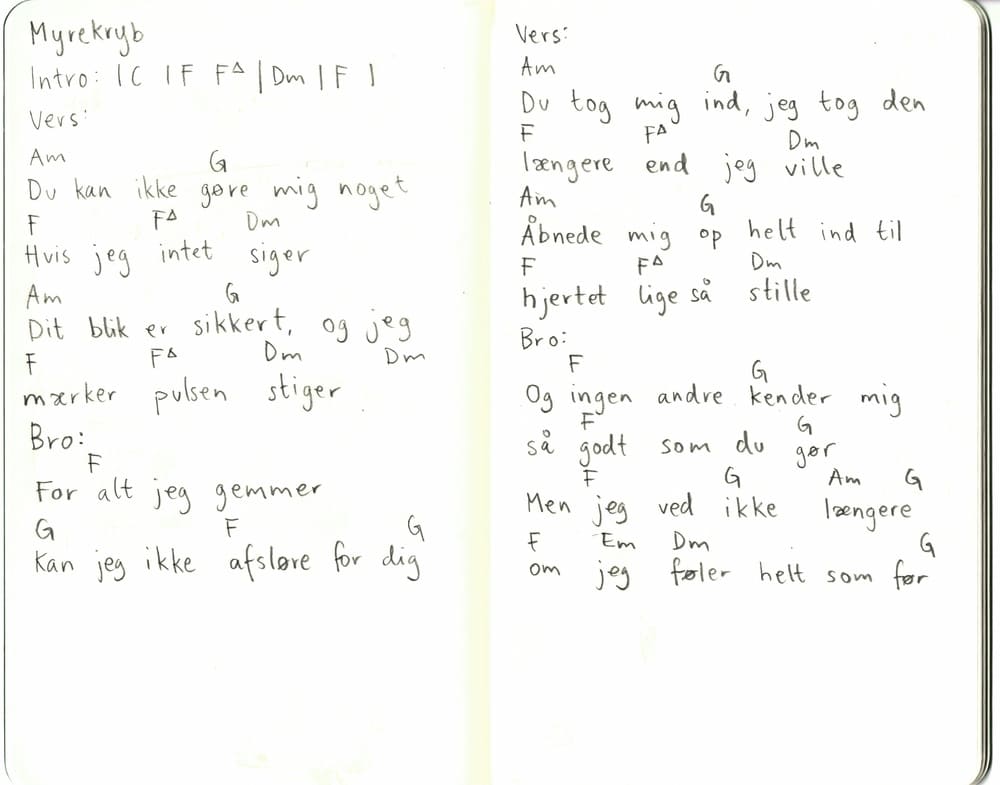 Myrekryb
Intro: | C | F F∆ | Dm | F |
Vers:
Am G
Du kan ikke gøre mig noget
F F∆ Dm
Hvis jeg intet siger
Am G
Dit blik er sikkert, og jeg
F F∆ Dm Dm
mærker pulsen stiger
Bro:
F
For alt jeg gemmer
G F G
Kan jeg ikke afsløre for dig
Vers:
Am G
Du tog mig ind, jeg tog den
F F∆ Dm
længere end jeg ville
Am G
Åbnede mig op helt ind til
F F∆ Dm
hjertet lige så stille
Bro:
F G
Og ingen andre kender mig
F G
så godt som du gør
F G Am G
Men jeg ved ikke længere
F Em Dm G
om jeg føler helt som før